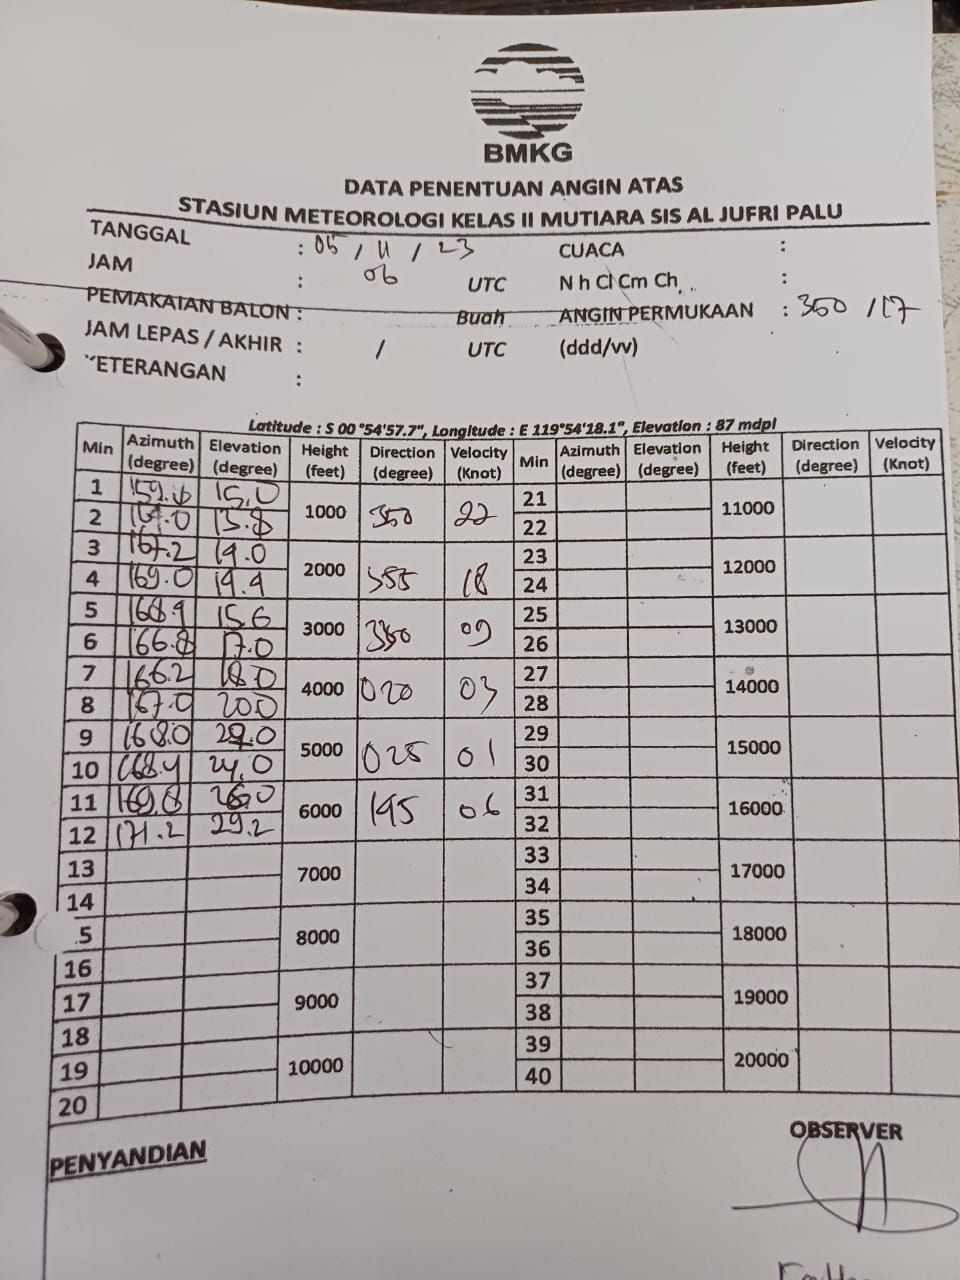 BMKG
DATA PENENTUAN ANGIN ATAS
STASIUN METEOROLOGI KELAS II MUTIARA SIS AL JUFRI PALU
TANGGAL : 05 / 11 / 23 CUACA :
JAM : 06 UTC N h Cl Cm Ch :
PEMAKAIAN BALON : Buah ANGIN PERMUKAAN : 350 / 17
JAM LEPAS / AKHIR : / UTC (ddd/vv)
ETERANGAN :
Latitude : S 00 °54'57.7", Longitude : E 119°54'18.1", Elevation : 87 mdpl
Min Azimuth (degree) Elevation (degree) Height (feet) Direction (degree) Velocity (Knot) Min Azimuth (degree) Elevation (degree) Height (feet) Direction (degree) Velocity (Knot)
1 15.0 1000 350 22 21 11000
2 13.8 22
3 167.2 2000 355 18 23 12000
4 169.0 24
5 15.6 3000 09 25 13000
6 166.8 17.0 26
7 166.2 18.0 4000 020 03 27 14000
8 167.0 20.0 28
9 168.0 5000 025 01 29 15000
10 168.4 30
11 6000 195 06 31 16000
12 171.2 29.2 32
13 7000 33 17000
14 34
5 8000 35 18000
16 36
17 9000 37 19000
18 38
19 10000 39 20000
20 40
PENYANDIAN
OBSERVER